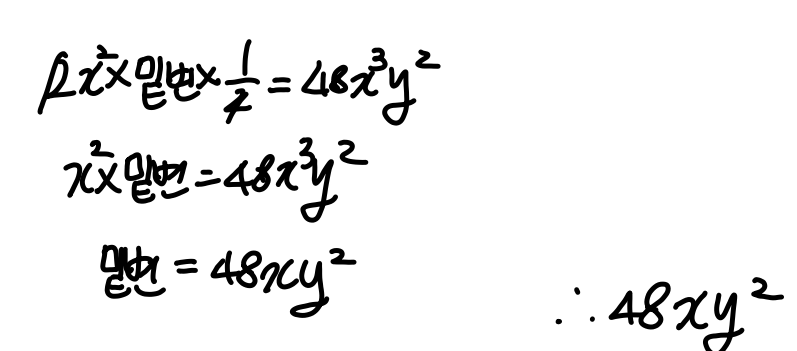 2x²×밑변×1/2=48x³y²
x²×밑변=48x³y²
밑변=48xy²
∴48xy²